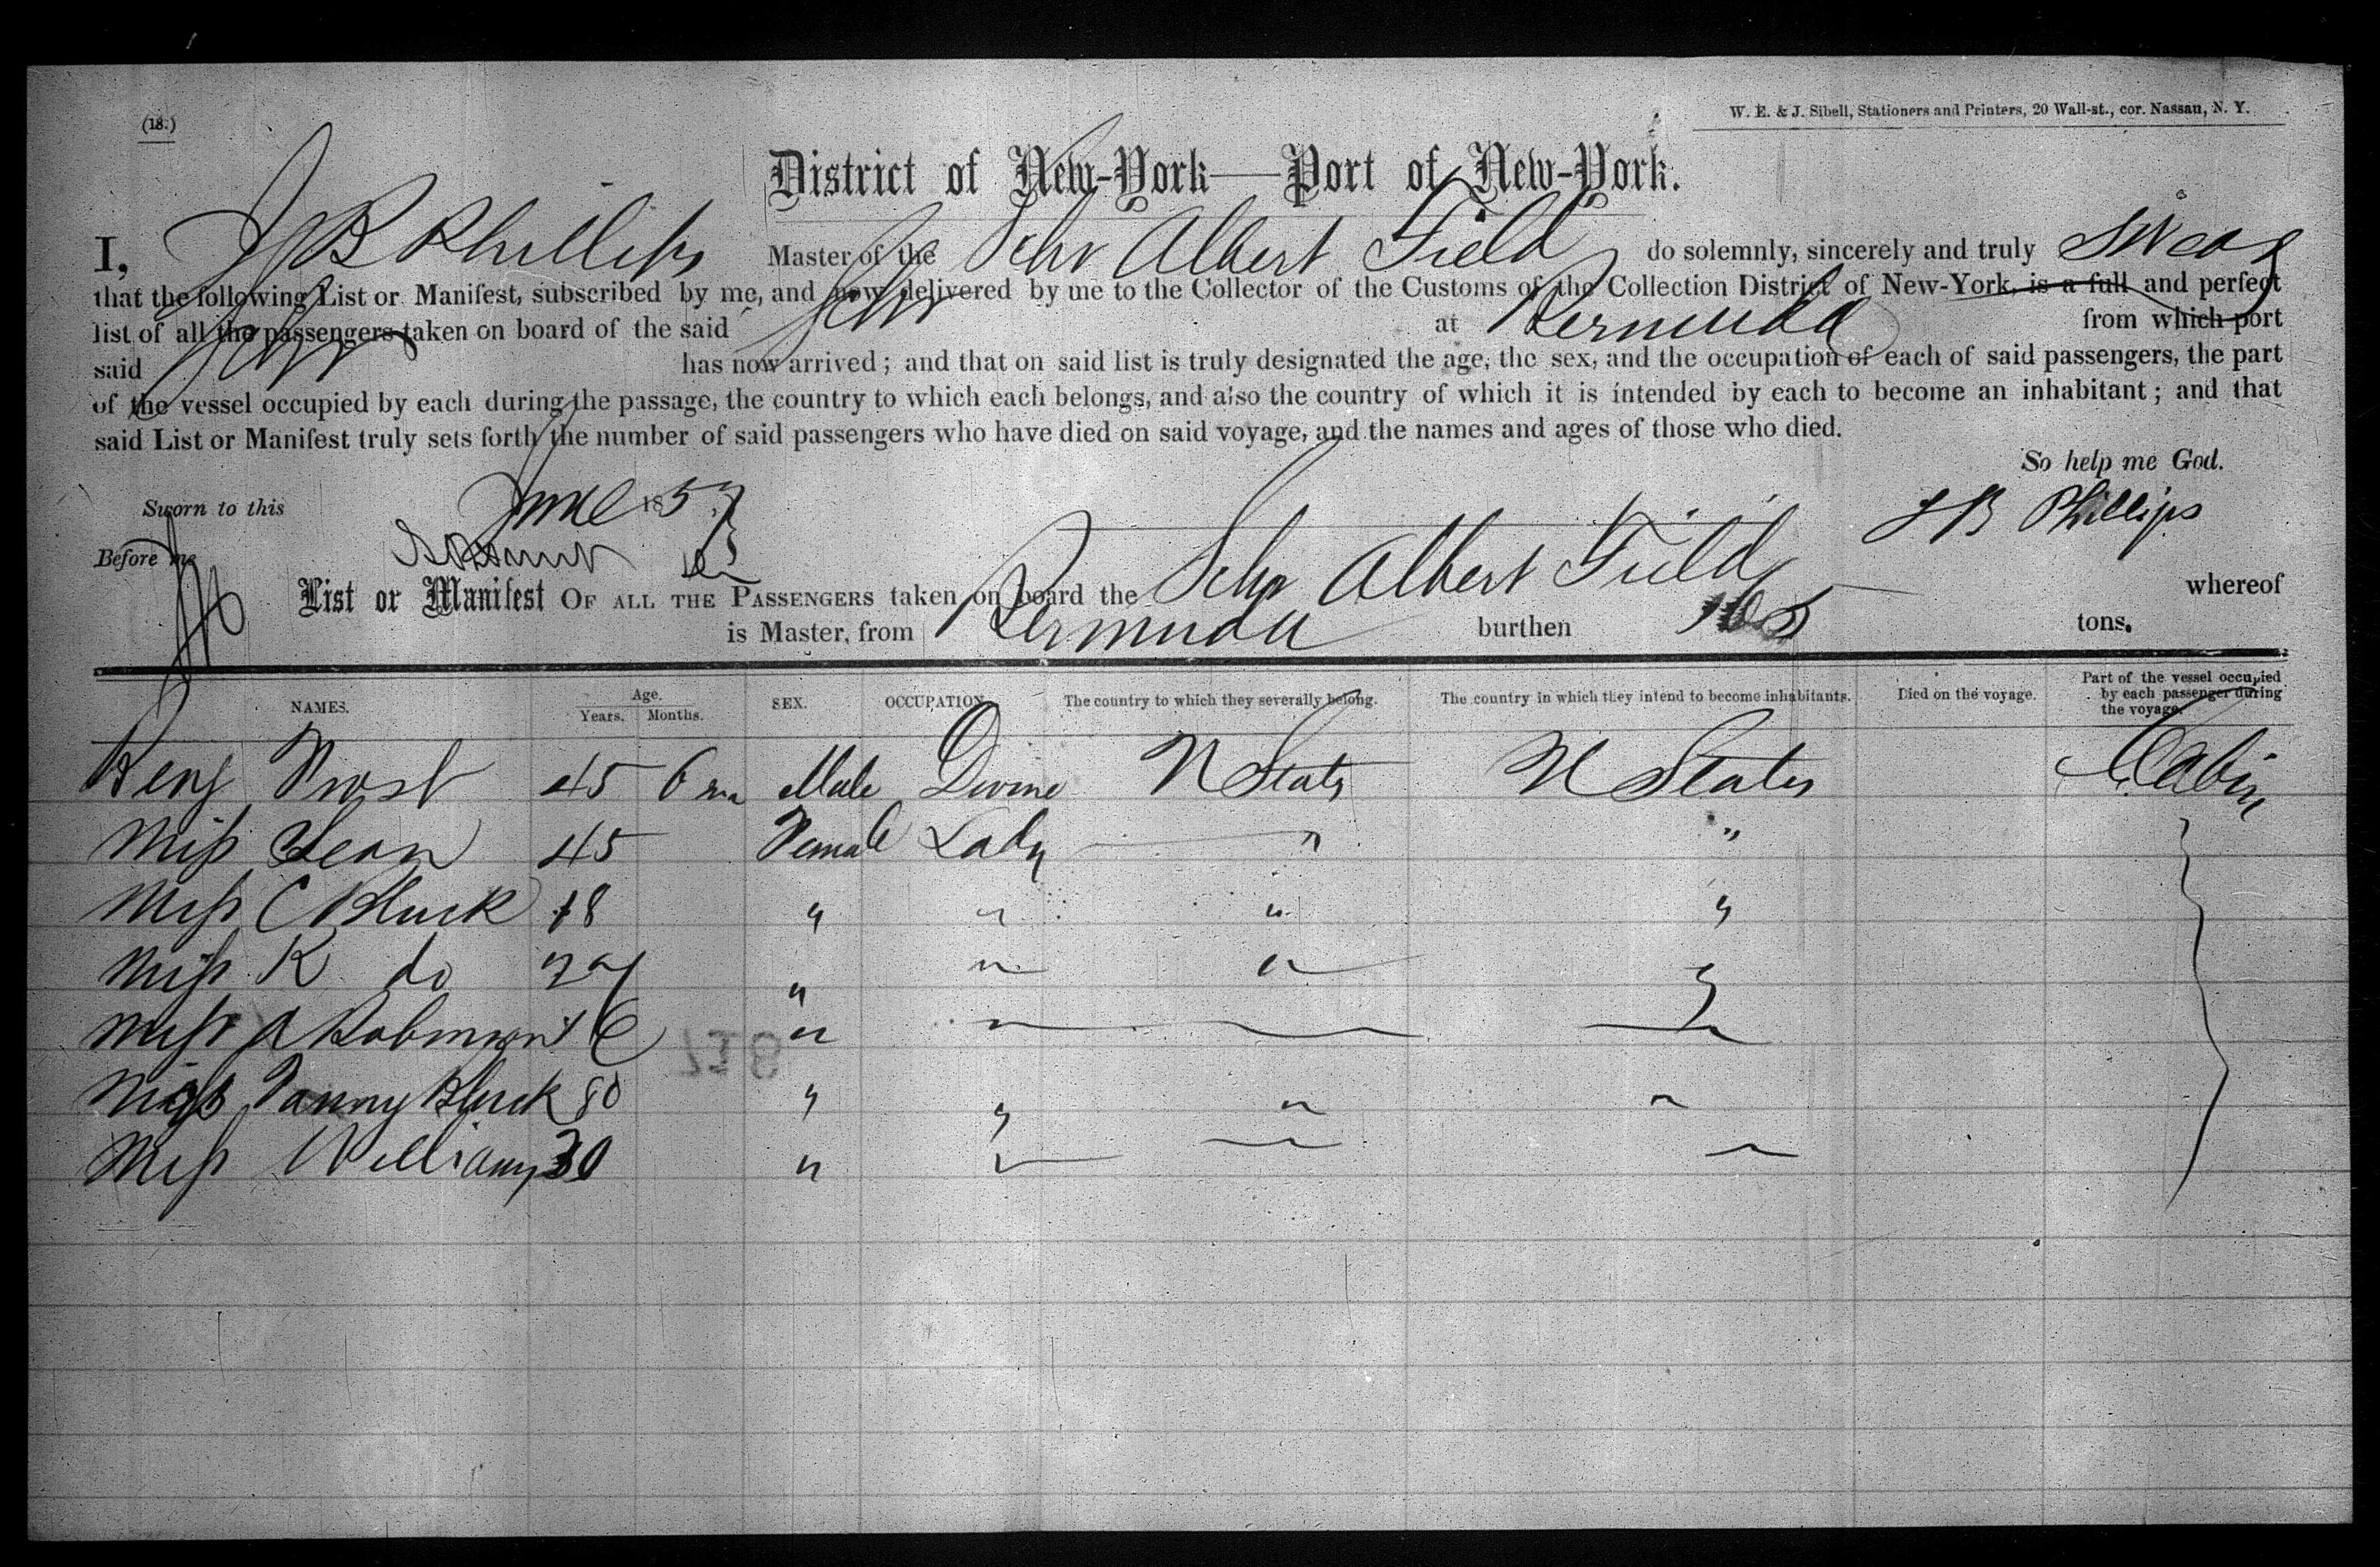 (18.)
W. E. & J. Sibell, Stationers and Printers, 20 Wall-st., cor. Nassau, N. Y.
District of New-York—Port of New-York.
I, J B Phillips Master of the Schr Albert Field do solemnly, sincerely and truly swear
that the following List or Manifest, subscribed by me, and now delivered by me to the Collector of the Customs of the Collection District of New-York, is a full and perfect
list of all the passengers taken on board of the said Schr at Bermuda from which port
said Schr has now arrived; and that on said list is truly designated the age, the sex, and the occupation of each of said passengers, the part
of the vessel occupied by each during the passage, the country to which each belongs, and also the country of which it is intended by each to become an inhabitant; and that
said List or Manifest truly sets forth the number of said passengers who have died on said voyage, and the names and ages of those who died.
So help me God.
Sworn to this June 1857
J B Phillips
Before me
List or Manifest OF ALL THE PASSENGERS taken on board the Schr Albert Field whereof
is Master, from Bermuda burthen 165 tons.
NAMES. Age. Years. Months. SEX. OCCUPATION. The country to which they severally belong. The country in which they intend to become inhabitants. Died on the voyage. Part of the vessel occupied by each passenger during the voyage.
45 6 m Male Divine U States U States Cabin
Miss 45 Female Lady " "
Miss C Bluck 18 " " " "
Miss K do " " " "
Miss A Robinson 16 " " " "
Miss Fanny Bluck 80 " " " "
Miss Williams 30 " " " "